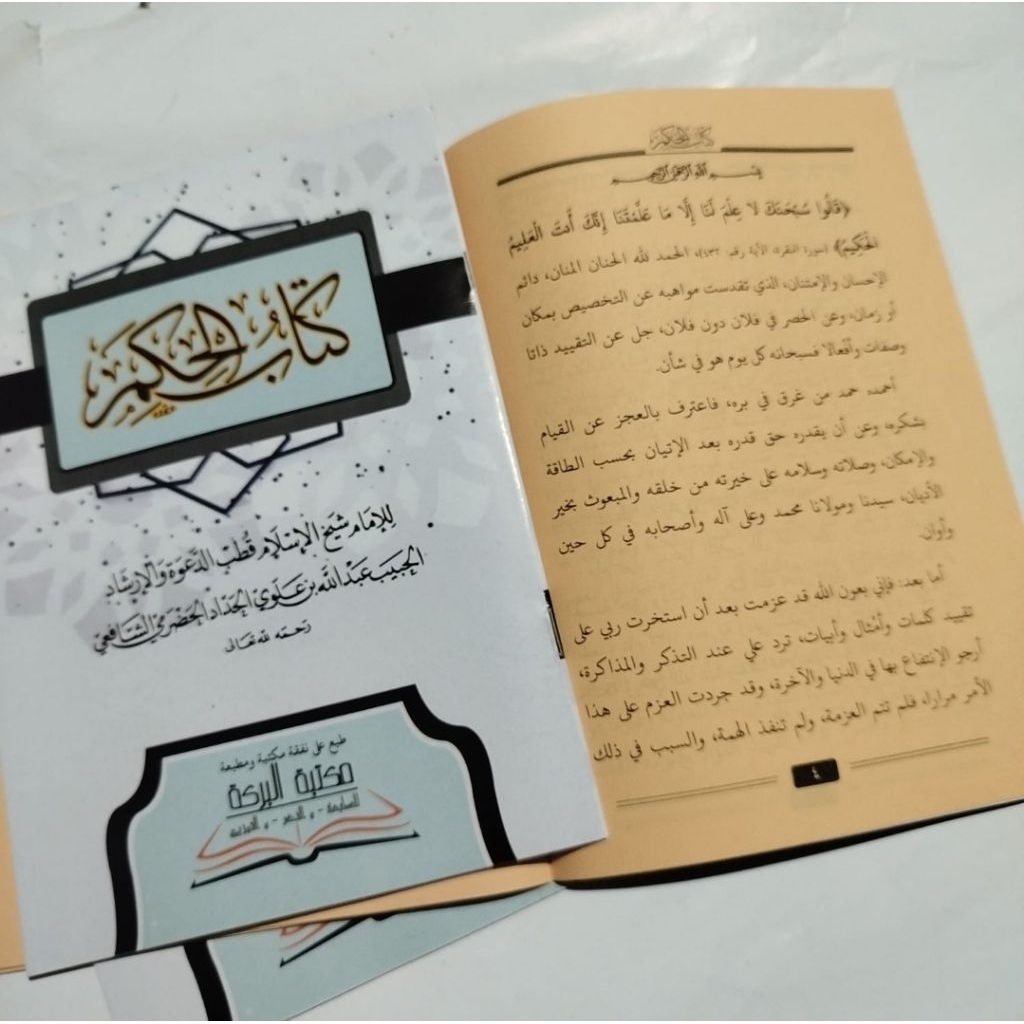 كتاب الحكم
للإمام شيخ الإسلام قطب الدعوة والإرشاد
الحبيب عبد الله بن علوي الحداد الحضرمي الشافعي
رحمه الله تعالى
طبع على نفقة مكتبة ومطبعة
مكتبة البركة
كتاب الحكم
بسم الله الرحمن الرحيم
﴿قَالُوا سُبْحَٰنَكَ لَا عِلْمَ لَنَا إِلَّا مَا عَلَّمْتَنَا إِنَّكَ أَنتَ الْعَلِيمُ
الْحَكِيمُ﴾ (سورة البقرة الآية رقم: ٣٢)، الحمد لله الحنان المنان، دائم
الإحسان والإمتنان، الذي تقدست مواهبه عن التخصيص بمكان
أو زمان، وعن الحصر في فلان دون فلان، جل عن التقييد ذاتا
وصفات وأفعالا فسبحانه كل يوم هو في شأن.
أحمده حمد من غرق في بره، فاعترف بالعجز عن القيام
بشكره، وعن أن يقدره حق قدره بعد الإتيان بحسب الطاقة
والإمكان، وصلاته وسلامه على خيرته من خلقه والمبعوث بخير
الأديان، سيدنا ومولانا محمد وعلى آله وأصحابه في كل حين
وأوان.
أما بعد: فإني بعون الله قد عزمت بعد أن استخرت ربي على
تقييد كلمات وأمثال وأبيات، ترد علي عند التذكر والمذاكرة،
أرجو الإنتفاع بها في الدنيا والآخرة، وقد جردت العزم على هذا
الأمر مرارا، فلم تتم العزمة، ولم تنفذ الهمة، والسبب في ذلك
٤